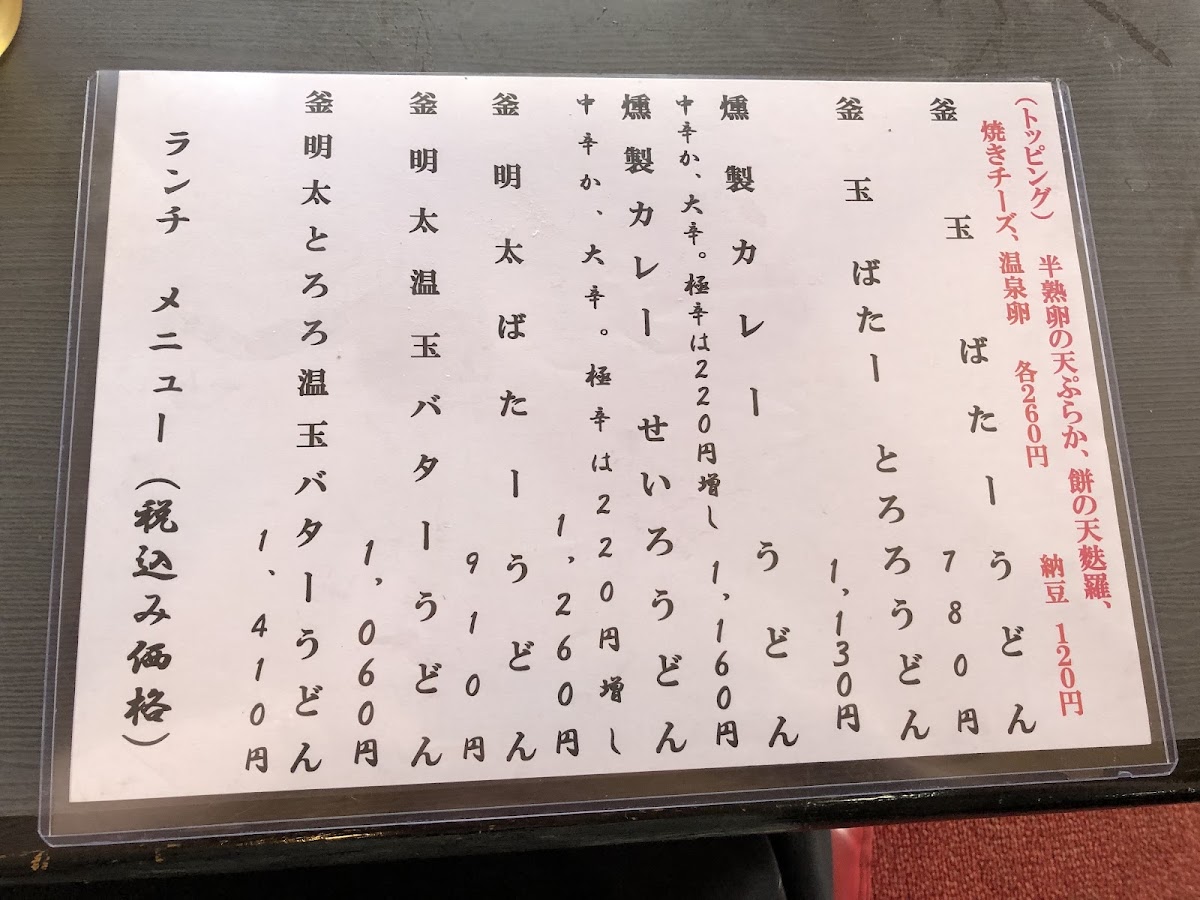 (トッピング) 半熟卵の天ぷらか、餅の天麩羅、
焼きチーズ、温泉卵 各260円 納豆 120円
釜玉ばたーうどん
780円
釜玉ばたーとろろうどん
1,130円
燻製カレーうどん
中辛か、大辛。極辛は220円増し 1,160円
燻製カレーせいろうどん
中辛か、大辛。極辛は220円増し
1,260円
釜明太ばたーうどん
910円
釜明太温玉バターうどん
1,060円
釜明太とろろ温玉バターうどん
1、410円
ランチ メニュー(税込み価格)